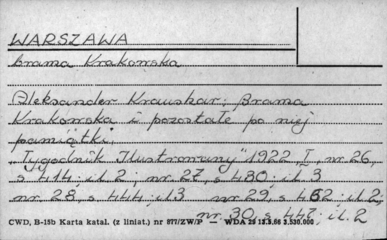 WARSZAWA
brama Krakowska
Aleksander Kraushar: Brama
Krakowska i pozostałe po niej
pamiątki.
„Tygodnik Ilustrowany" 1922 I, nr. 26,
s 414: il. 2 ; nr. 27, s 430: il. 3
nr. 28, s. 444: il. 3 nr. 29, s. 462: il. 2,
nr. 30, s. : il. 2
CWD, B-15b Karta katal. (z liniat.) nr 877/ZW/P — WDA 25 13.9.66 2.530.000